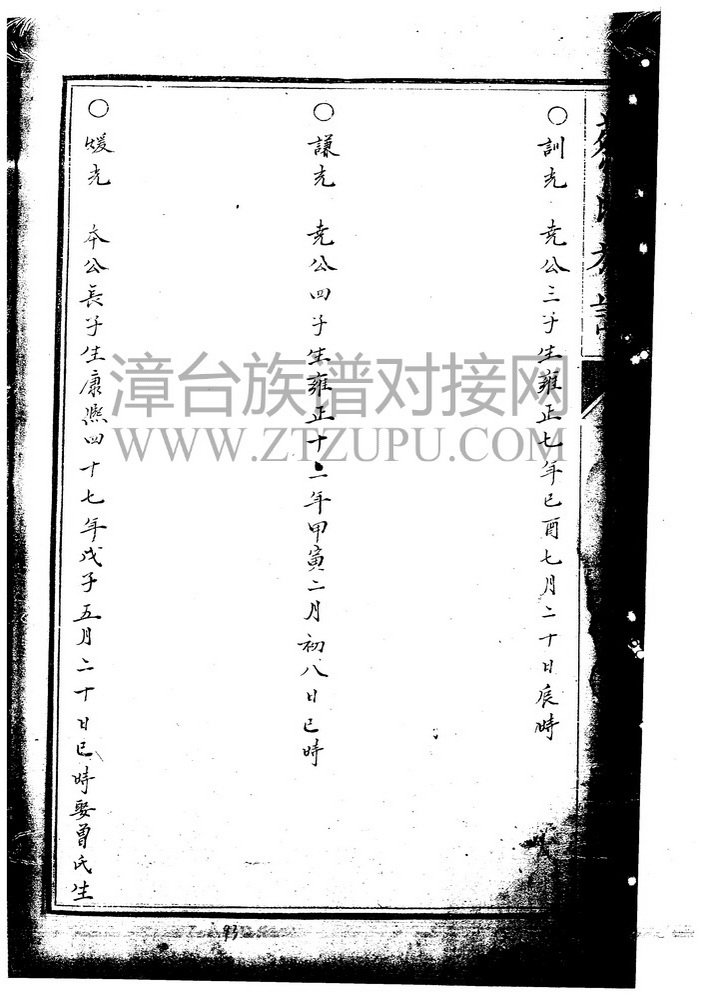 ○訓光 堯公三子生雍正七年己酉七月二十日辰時
○謙光 堯公四子生雍正十二年甲寅二月初八日巳時
○煖光 本公長子生康熙四十七年戊子五月二十日巳時娶曾氏生
漳台族谱对接网
WWW.ZTZUPU.COM
93